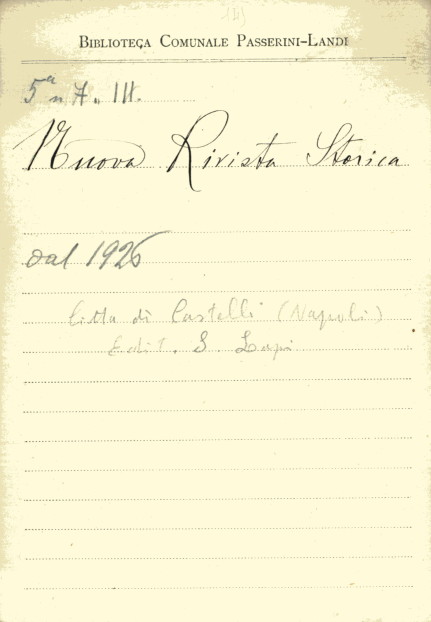 BIBLIOTECA COMUNALE PASSERINI-LANDI
5ª n 7. III.
Nuova Rivista Storica
dal 1926
Citta di Castelli (Napoli)
Edit. S. Lapi